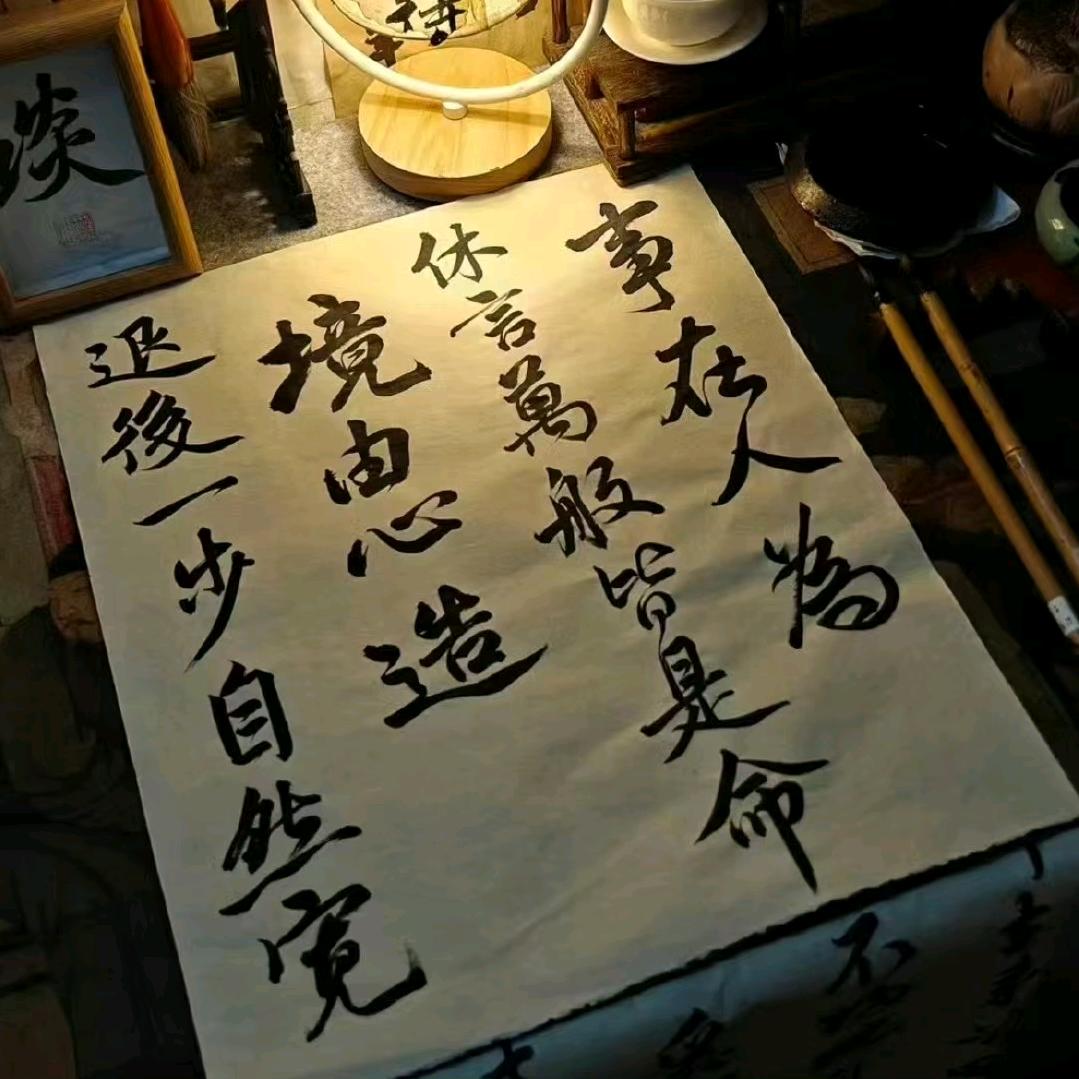 事在人為
休言萬般皆是命
境由心造
退後一步自然寬
淡
不